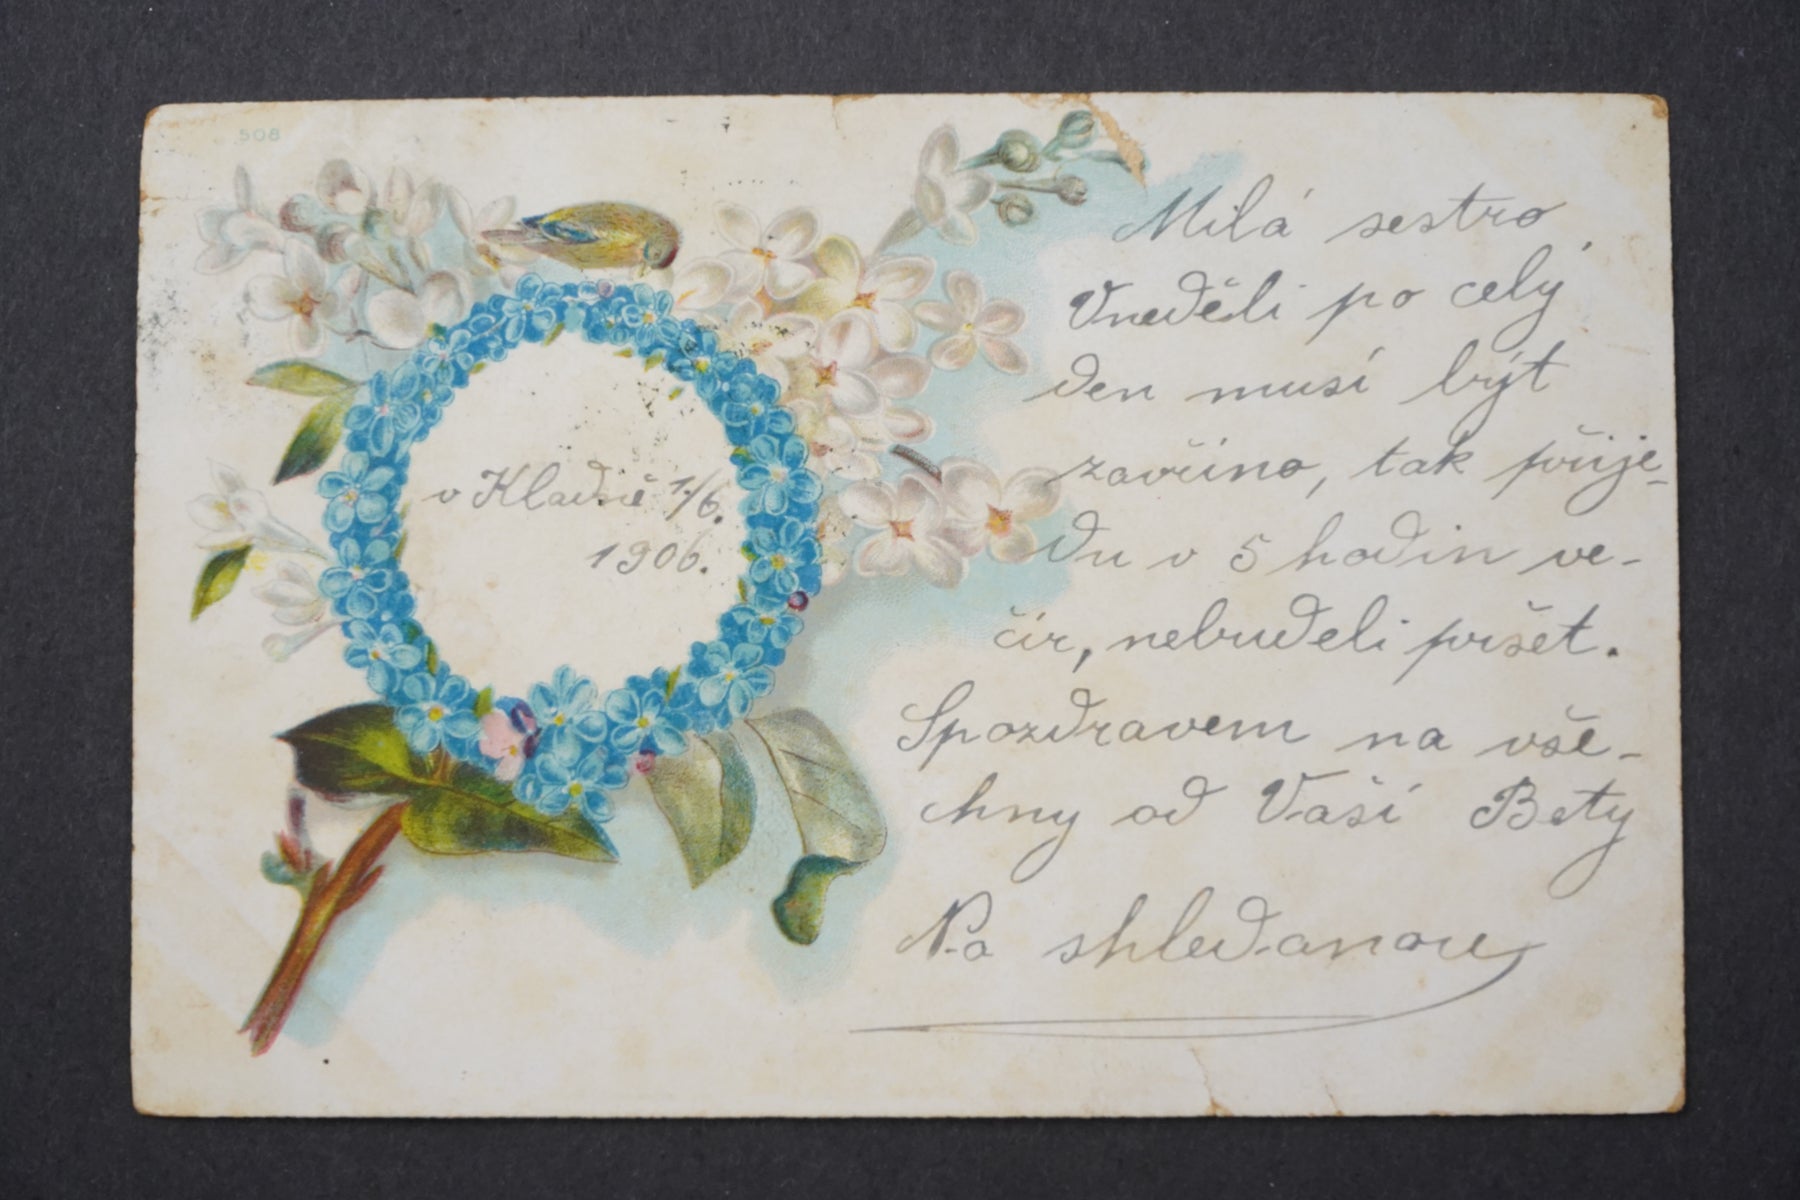 508
v Kladně 1./6.
1906.
Milá sestro,
Vneděli po celý
den musí být
zavříno, tak přije-
du v 5 hodin ve-
čír, nebudeli pršet.
Spozdravem na vše-
chny od Vaší Bety
Na shledanou